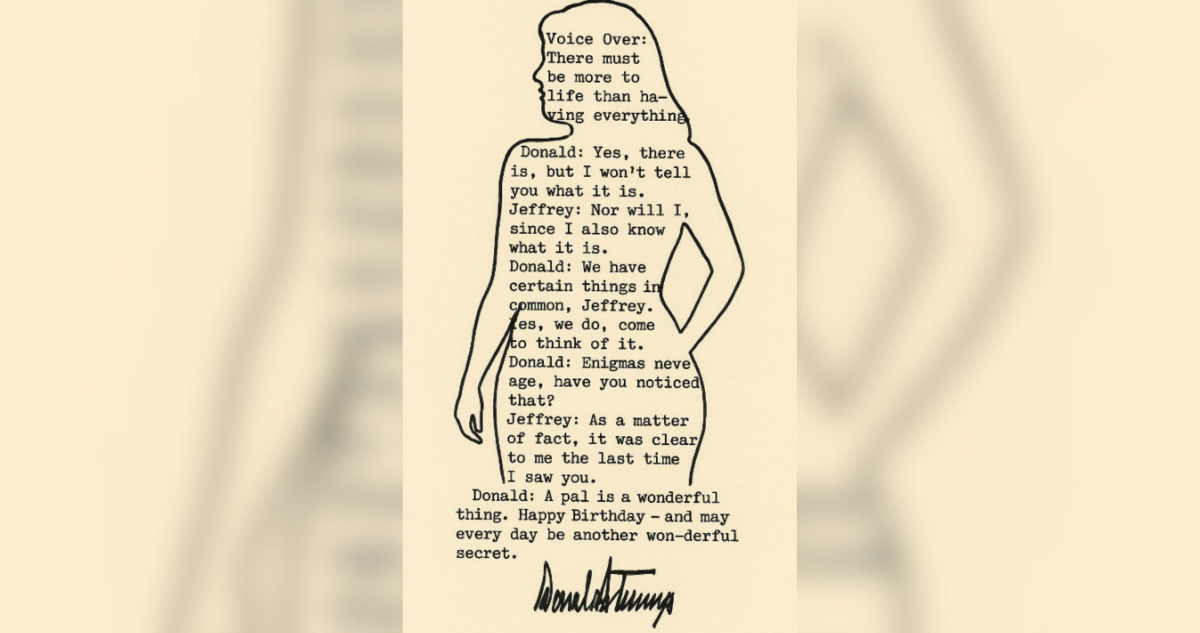 Voice Over:
There must
be more to
life than ha-
ving everything
Donald: Yes, there
is, but I won't tell
you what it is.
Jeffrey: Nor will I,
since I also know
what it is.
Donald: We have
certain things in
common, Jeffrey.
Yes, we do, come
to think of it.
Donald: Enigmas neve
age, have you noticed
that?
Jeffrey: As a matter
of fact, it was clear
to me the last time
I saw you.
Donald: A pal is a wonderful
thing. Happy Birthday – and may
every day be another won-derful
secret.
Donald Trump